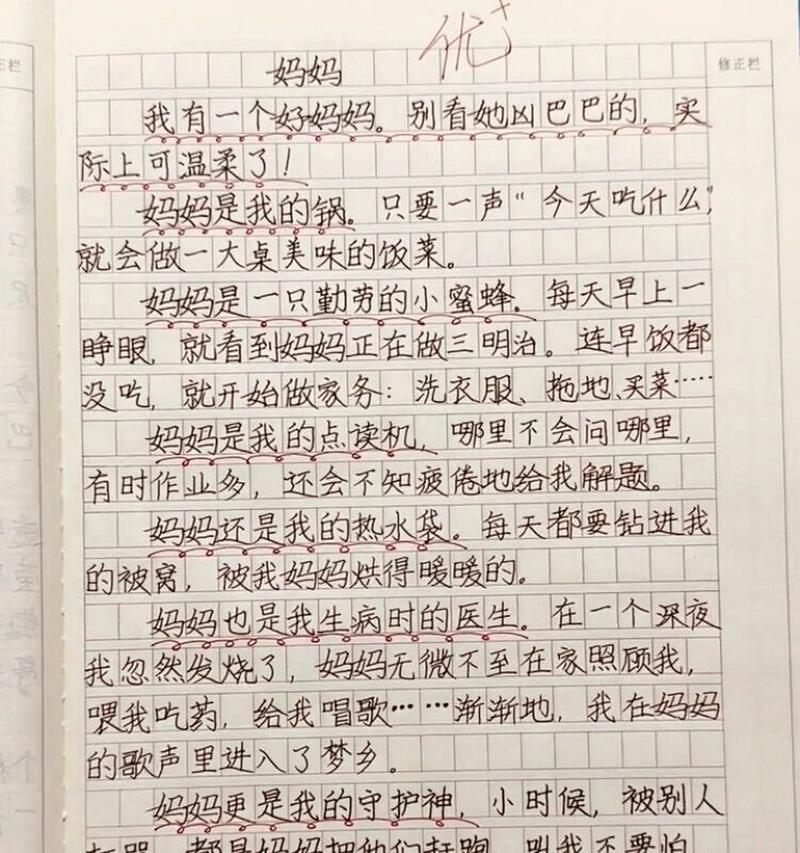 优+
修正栏
正栏
妈妈
我有一个好妈妈。别看她凶巴巴的，实
际上可温柔了！
妈妈是我的锅。只要一声“今天吃什么”，
就会做一大桌美味的饭菜。
妈妈是一只勤劳的小蜜蜂。每天早上一
睁眼，就看到妈妈正在做三明治。连早饭都
没吃，就开始做家务：洗衣服、拖地、买菜……
妈妈是我的点读机，哪里不会问哪里，
有时作业多，还会不知疲倦地给我解题。
妈妈还是我的热水袋。每天都要钻进我
的被窝，被我妈妈烘得暖暖的。
妈妈也是我生病时的医生。在一个深夜
我忽然发烧了，妈妈无微不至在家照顾我，
喂我吃药，给我唱歌……渐渐地，我在妈妈
的歌声里进入了梦乡。
妈妈更是我的守护神，小时候，被别人
都是妈妈把他们赶跑，叫我不要怕